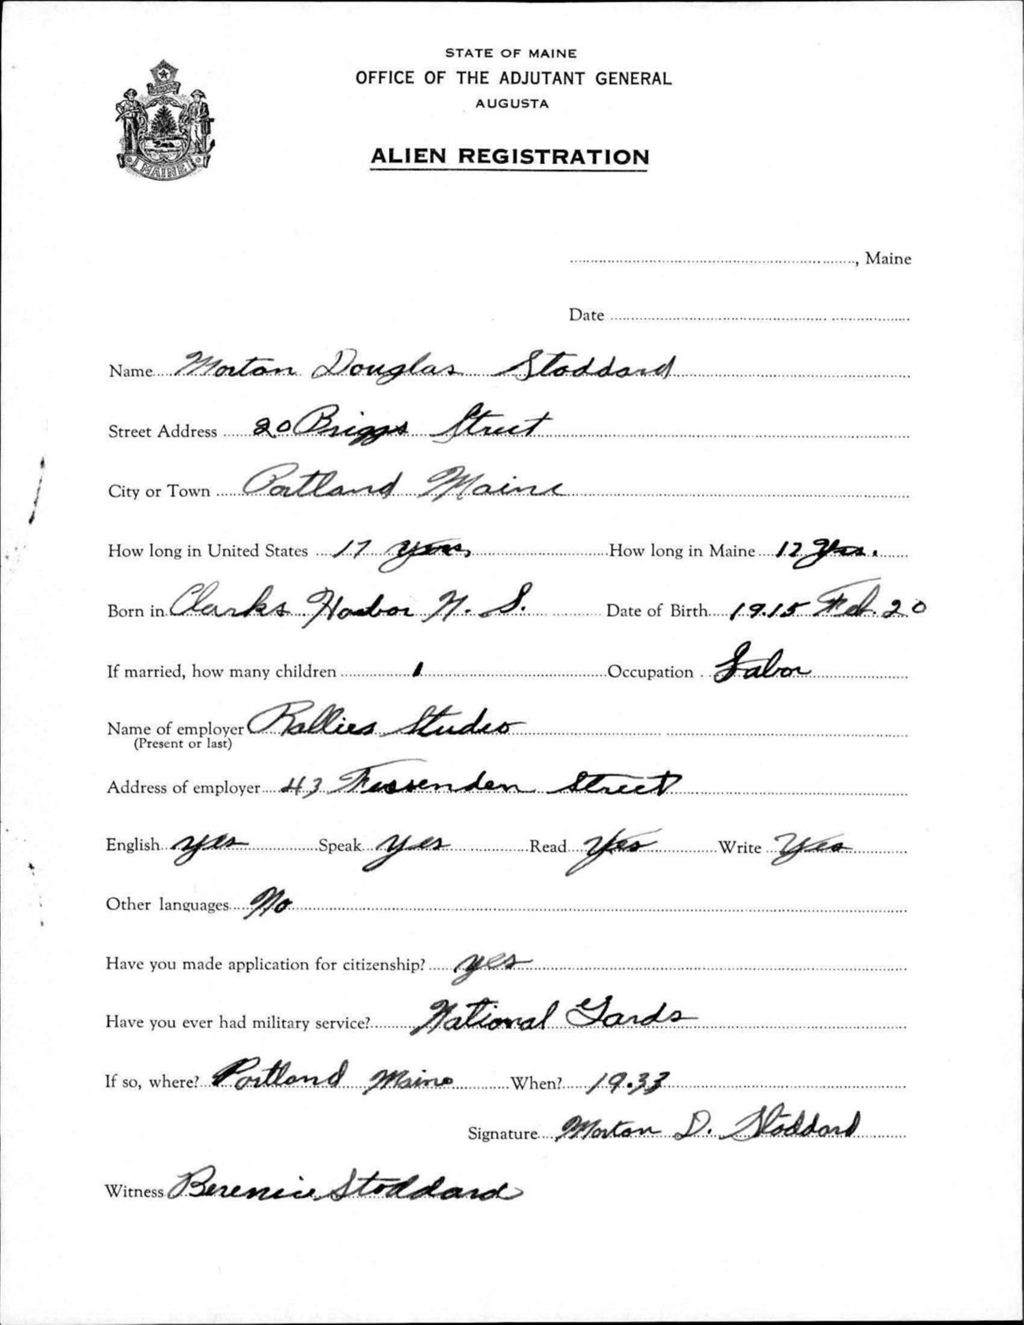 STATE OF MAINE
OFFICE OF THE ADJUTANT GENERAL
AUGUSTA
ALIEN REGISTRATION
MAINE
, Maine
Date
Name Morton Douglas Stoddard
Street Address 20 Briggs Street
City or Town Portland Maine
How long in United States 17 years, How long in Maine 12 yrs.
Born in Clarks Harbor N. S. Date of Birth 1915 Feb. 20
If married, how many children 1 Occupation Labor
Name of employer Rallies Studio
(Present or last)
Address of employer 43 Fessenden Street
English yes Speak yes Read yes Write Yes
Other languages No
Have you made application for citizenship? yes
Have you ever had military service? National Gards
If so, where? Portland Maine When? 1933
Signature Morton D. Stoddard
Witness Berenice Stoddard